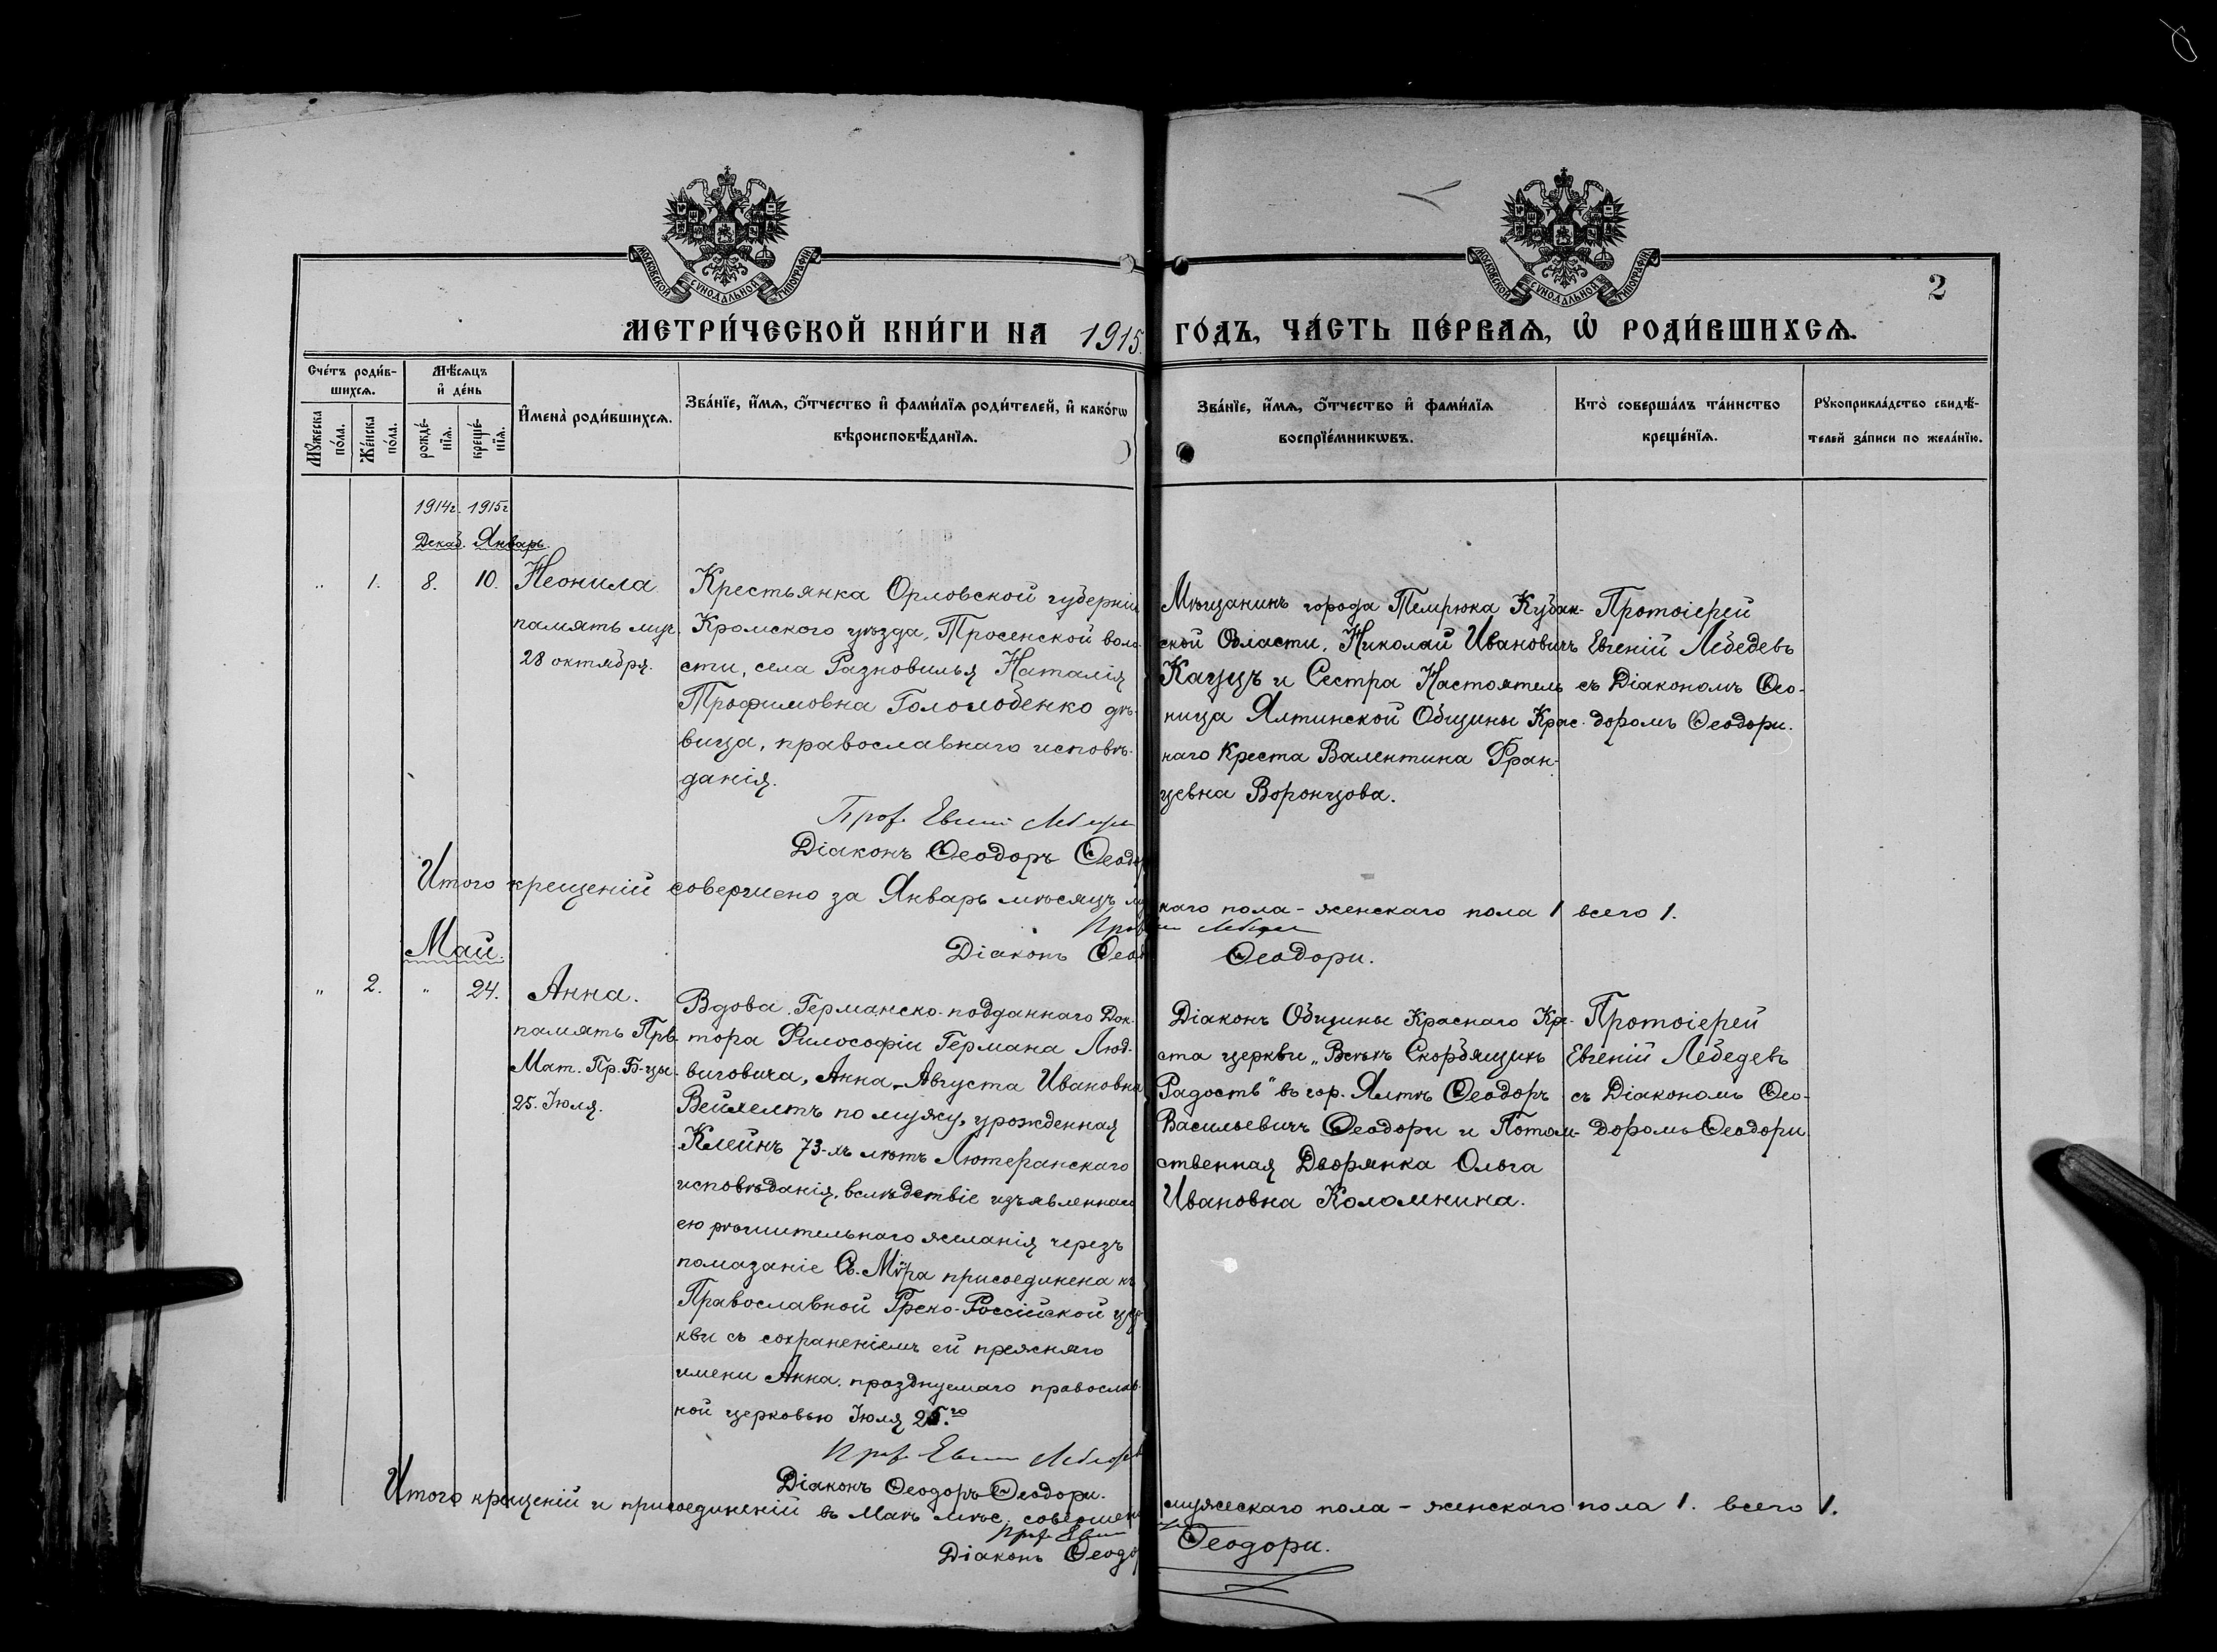 МОСКОВСКОЙ СѴНОДАЛЬНОЙ ТИПОГРАФІИ
МОСКОВСКОЙ СѴНОДАЛЬНОЙ ТИПОГРАФІИ
2
МЕТРИ́ЧЕСКОЙ КНИ́ГИ НА 1915. ГО́ДЪ, ЧА́СТЬ ПЕ́РВАѦ, Ѡ҆ РОДИ́ВШИХСѦ.
Сче́тъ роди́в-
шихсѧ.
Мꙋ́жеска по́ла.
Же́нска по́ла.
Мѣ́сѧцъ
и҆ де́нь
рожде́-нїѧ.
креще́-нїѧ.
И҆мена̀ роди́вшихсѧ.
Зва́нїе, и҆́мѧ, ѻ҆́тчество и҆ фами́лїѧ роди́телей, и҆ како́гѡ
вѣроисповѣ́данїѧ.
Зва́нїе, и҆́мѧ, ѻ҆́тчество и҆ фами́лїѧ
воспрїе́мникѡвъ.
Кто̀ соверша́лъ та́инство
креще́нїѧ.
Рꙋкоприкла́дство свидѣ́-
телей за́писи по жела́нїю.
1914г. 1915г
Декаб. Январь
„ 1. 8. 10.
Неонила
память муч.
28 октября.
Крестьянка Орловской губерніи
Кромского уѣзда, Тросенской воло-
сти, села Разновилья Наталія
Трофимовна Гололобенко дѣ-
вица, православнаго исповѣ-
данія.
Мѣщанинъ города Темрюка Кубан-
ской Области, Николай Ивановичъ
Кауцъ и Сестра Настоятель
ница Ялтинской Общины Крас-
наго Креста Валентина Фран-
цевна Воронцова.
Протоіерей
Евгеній Лебедевъ
съ Діакономъ Ѳео-
доромъ Ѳеодори.
Прот. Евгеній Лебедев
Діаконъ Ѳеодоръ Ѳеодо
Итого крещеній совершено за Январь мѣсяцъ му каго пола - женскаго пола 1 всего 1.
Діаконъ Ѳеод Ѳеодори.
Май.
„ 2. „ 24.
Анна.
память Прв.
Мат. Пр. Б-цы.
25. Іюля.
Вдова Германско-подданнаго Док-
тора Философіи Германа Люд-
виговича, Анна-Августа Ивановна
Вейхелтъ по мужу, урожденная
Клейнъ 73-хъ лѣтъ Лютеранскаго
исповѣданія, вслѣдствіе изъявленнаго
ею рѣшительнаго желанія чрезъ
помазаніе Св. Мѵра присоединена къ
Православной Греко-Россійской цер-
кви съ сохраненіемъ ей прежняго
имени Анна, празднуемаго православ-
ной церковью Іюля 25.го
Діаконъ Общины Краснаго Кре-
ста церкви „Всѣхъ Скорбящихъ
Радость" въ гор. Ялтѣ Ѳеодоръ
Васильевичъ Ѳеодори и Потом-
ственная Дворянка Ольга
Ивановна Коломнина.
Протоіерей
Евгеній Лебедевъ
съ Діакономъ Ѳео-
доромъ Ѳеодори
Прот. Евгеній Лебедев
Діаконъ Ѳеодоръ Ѳеодори.
Итого крещеній и присоединеній въ Маѣ мѣс. совершено мужескаго пола - женскаго пола 1. всего 1.
Прот. Евгеній
Діаконъ Ѳеодо Ѳеодори.